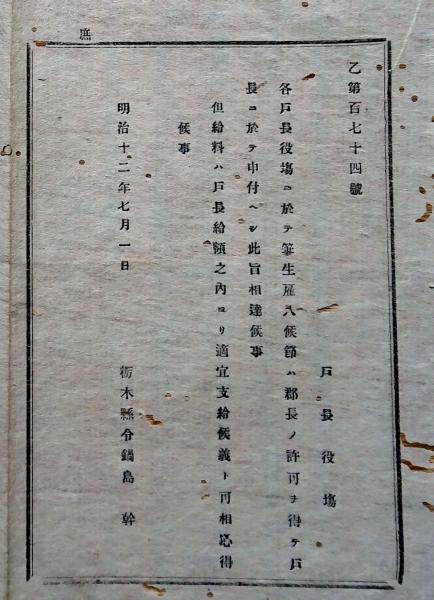 庶
乙第百七十四號
戸長役塲
各戸長役塲ニ於テ筆生雇入候節ハ郡長ノ許可ヲ得テ戸
長ニ於テ申付ヘシ此旨相達候事
但給料ハ戸長給額之內ヨリ適宜支給候義ト可相心得
候事
明治十二年七月一日
栃木縣令鍋島幹